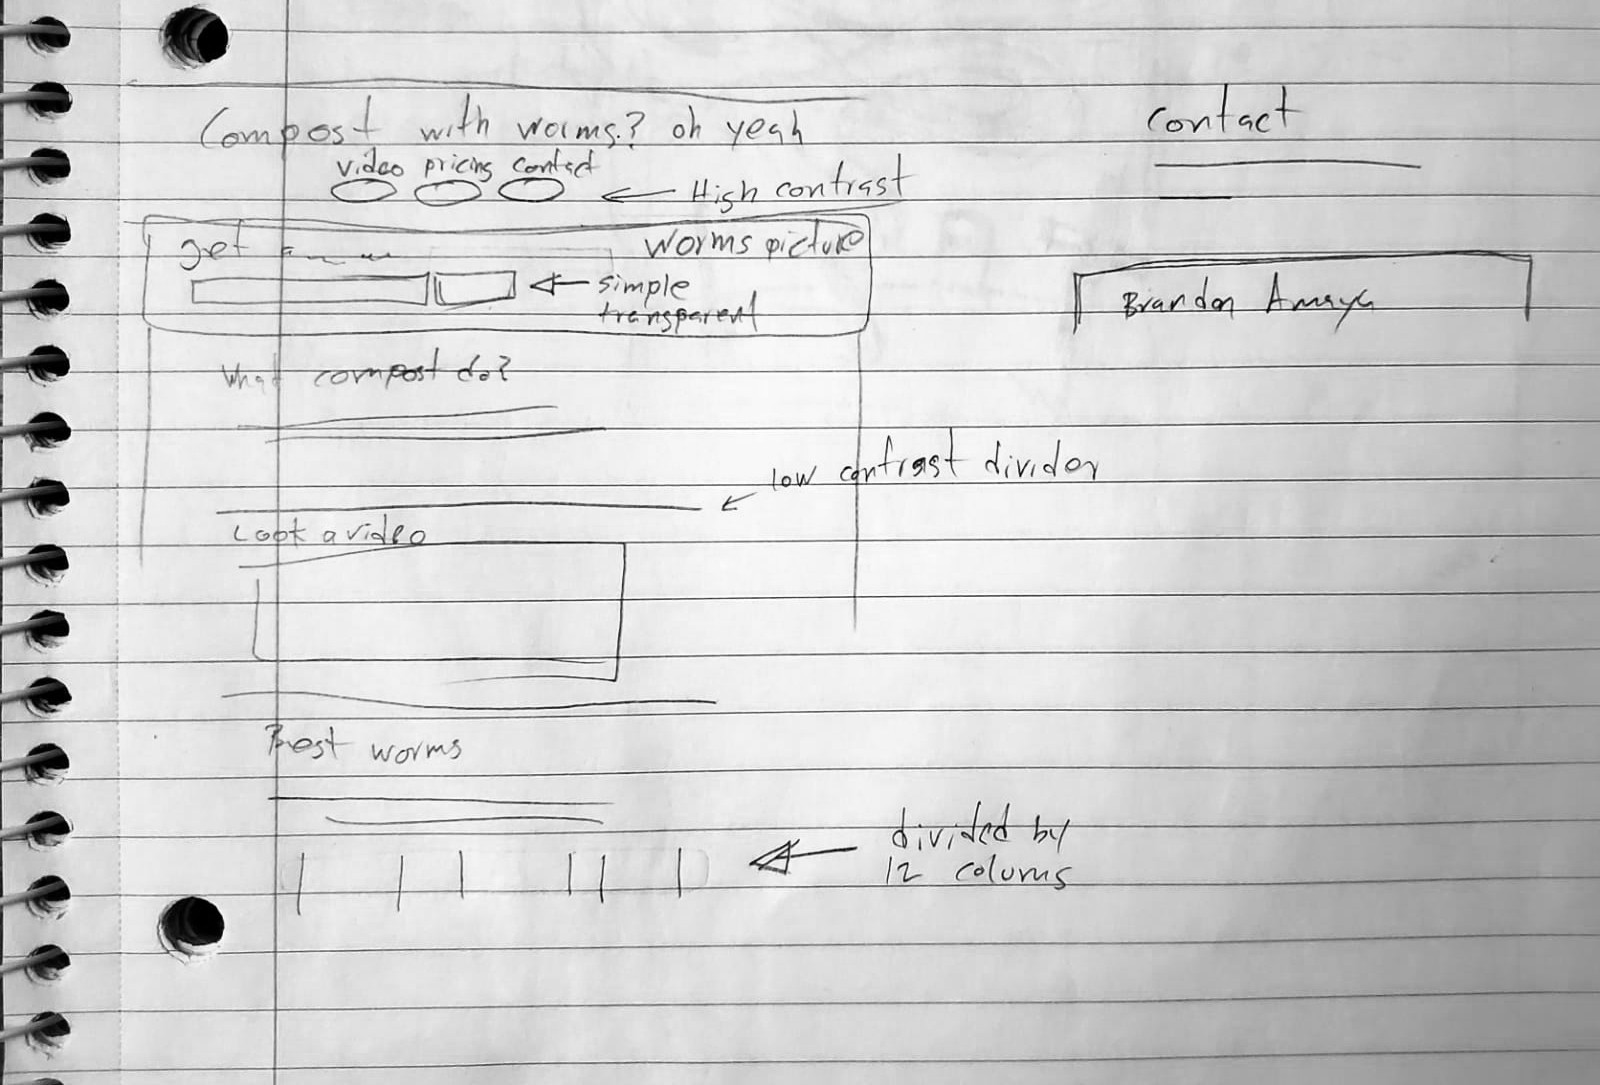 Compost with worms? oh yeah
video pricing contact
← High contrast
get
worms picture
← simple
transparent
What compost do?
← low contrast divider
Look a video
Best worms
← divided by
12 colums
contact
Brandon Amaya